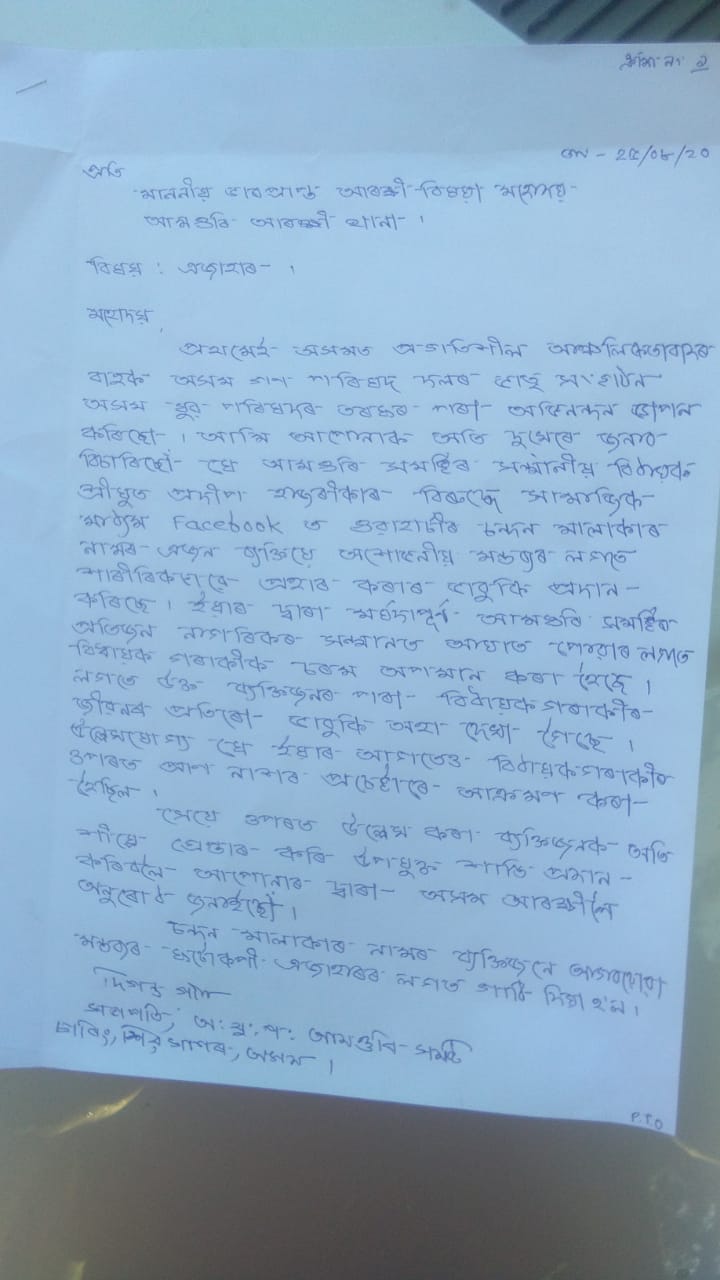 নং ২
তাং - ২৫/০৮/২০
প্রতি
মাননীয় ভাৰপ্ৰাপ্ত আৰক্ষী বিষয়া মহোদয়
আমগুৰি আৰক্ষী থানা ।
বিষয় : এজাহাৰ ।
মহোদয়,
প্ৰথমেই অসমত প্ৰগতিশীল আঞ্চলিকতাবাদৰ
বাহক অসম গণ পৰিষদ দলৰ ভাতৃ সংগঠন
অসম যুৱ পৰিষদৰ তৰফৰ পৰা অভিনন্দন জ্ঞাপন
কৰিছো । আমি আপোনাক অতি দুখেৰে জনাব
বিচাৰিছোঁ যে আমগুৰি সমষ্টিৰ সন্মানীয় বিধায়ক
শ্ৰীযুত প্ৰদীপ হাজৰীকাৰ বিৰুদ্ধে সামাজিক
মাধ্যম Facebook ত গুৱাহাটীৰ চন্দন মালাকাৰ
নামৰ এজন ব্যক্তিয়ে অশোভনীয় মন্তব্যৰ লগতে
শাৰীৰিকভাৱে প্ৰহাৰ কৰাৰ ভাবুকি প্ৰদান
কৰিছে । ইয়াৰ দ্বাৰা মৰ্যদাপূৰ্ণ আমগুৰি সমষ্টিৰ
প্ৰতিজন নাগৰিকৰ সন্মানত আঘাত পোৱাৰ লগতে
বিধায়ক গৰাকীক চৰম অপমান কৰা হৈছে ।
লগতে উক্ত ব্যক্তিজনৰ পৰা বিধায়ক গৰাকীৰ
জীৱনৰ প্ৰতিৰো ভাবুকি অহা দেখা গৈছে ।
উল্লেখযোগ্য যে ইয়াৰ আগতেও বিধায়কগৰাকীৰ
ওপৰত প্ৰাণ নাশৰ প্ৰচেষ্টাৰে আক্ৰমণ কৰা
হৈছিল ।
সেয়ে ওপৰত উল্লেখ কৰা ব্যক্তিজনক অতি
শীঘ্ৰে গ্ৰেপ্তাৰ কৰি উপযুক্ত শাস্তি প্ৰদান
কৰিবলৈ আপোনাৰ দ্বাৰা অসম আৰক্ষীলৈ
অনুৰোধ জনাইছোঁ ।
চন্দন মালাকাৰ নামৰ ব্যক্তিজনে আগবঢ়োৱা
মন্তব্যৰ ফটোকপী এজাহাৰৰ লগত গাঠি দিয়া হ'ল ।
দিগন্ত গগৈ
সভাপতি, অ: যু: প: আমগুৰি সমষ্টি
চাৰিং, শিৱসাগৰ, অসম ।
P.T.O